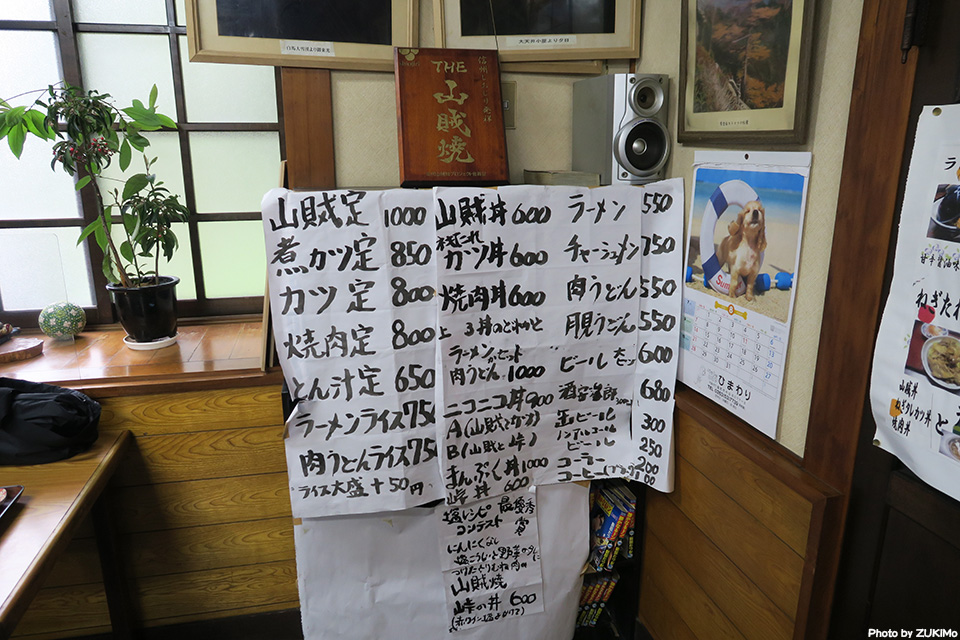 THE
山賊焼
山賊定 1000
煮カツ定 850
カツ定 800
焼肉定 800
とん汁定 650
ラーメンライス 750
肉うどんライス 750
ライス大盛+50円
山賊丼 600
ねぎだれ
カツ丼 600
焼肉丼 600
上 3丼のどれかと
ラーメン
肉うどん がセット 1000
ニコニコ丼 900
A(山賊とカツ)
B(山賊と峠)
まんぷく丼 1000
峠丼 600
塩レシピ 最優秀
コンテスト 賞
にんにくなし
山賊焼
峠の丼 600
ラーメン 550
チャーシュメン 750
肉うどん 550
月見うどん 550
ビール 600
680
缶ビール 300
ノンアルコール
ビール 250
コーラー 200
コーヒー 100
Sum
8
ひまわり
ねぎたれ
山賊丼
ねぎタレカツ丼
焼肉丼
Photo by ZUKIMo